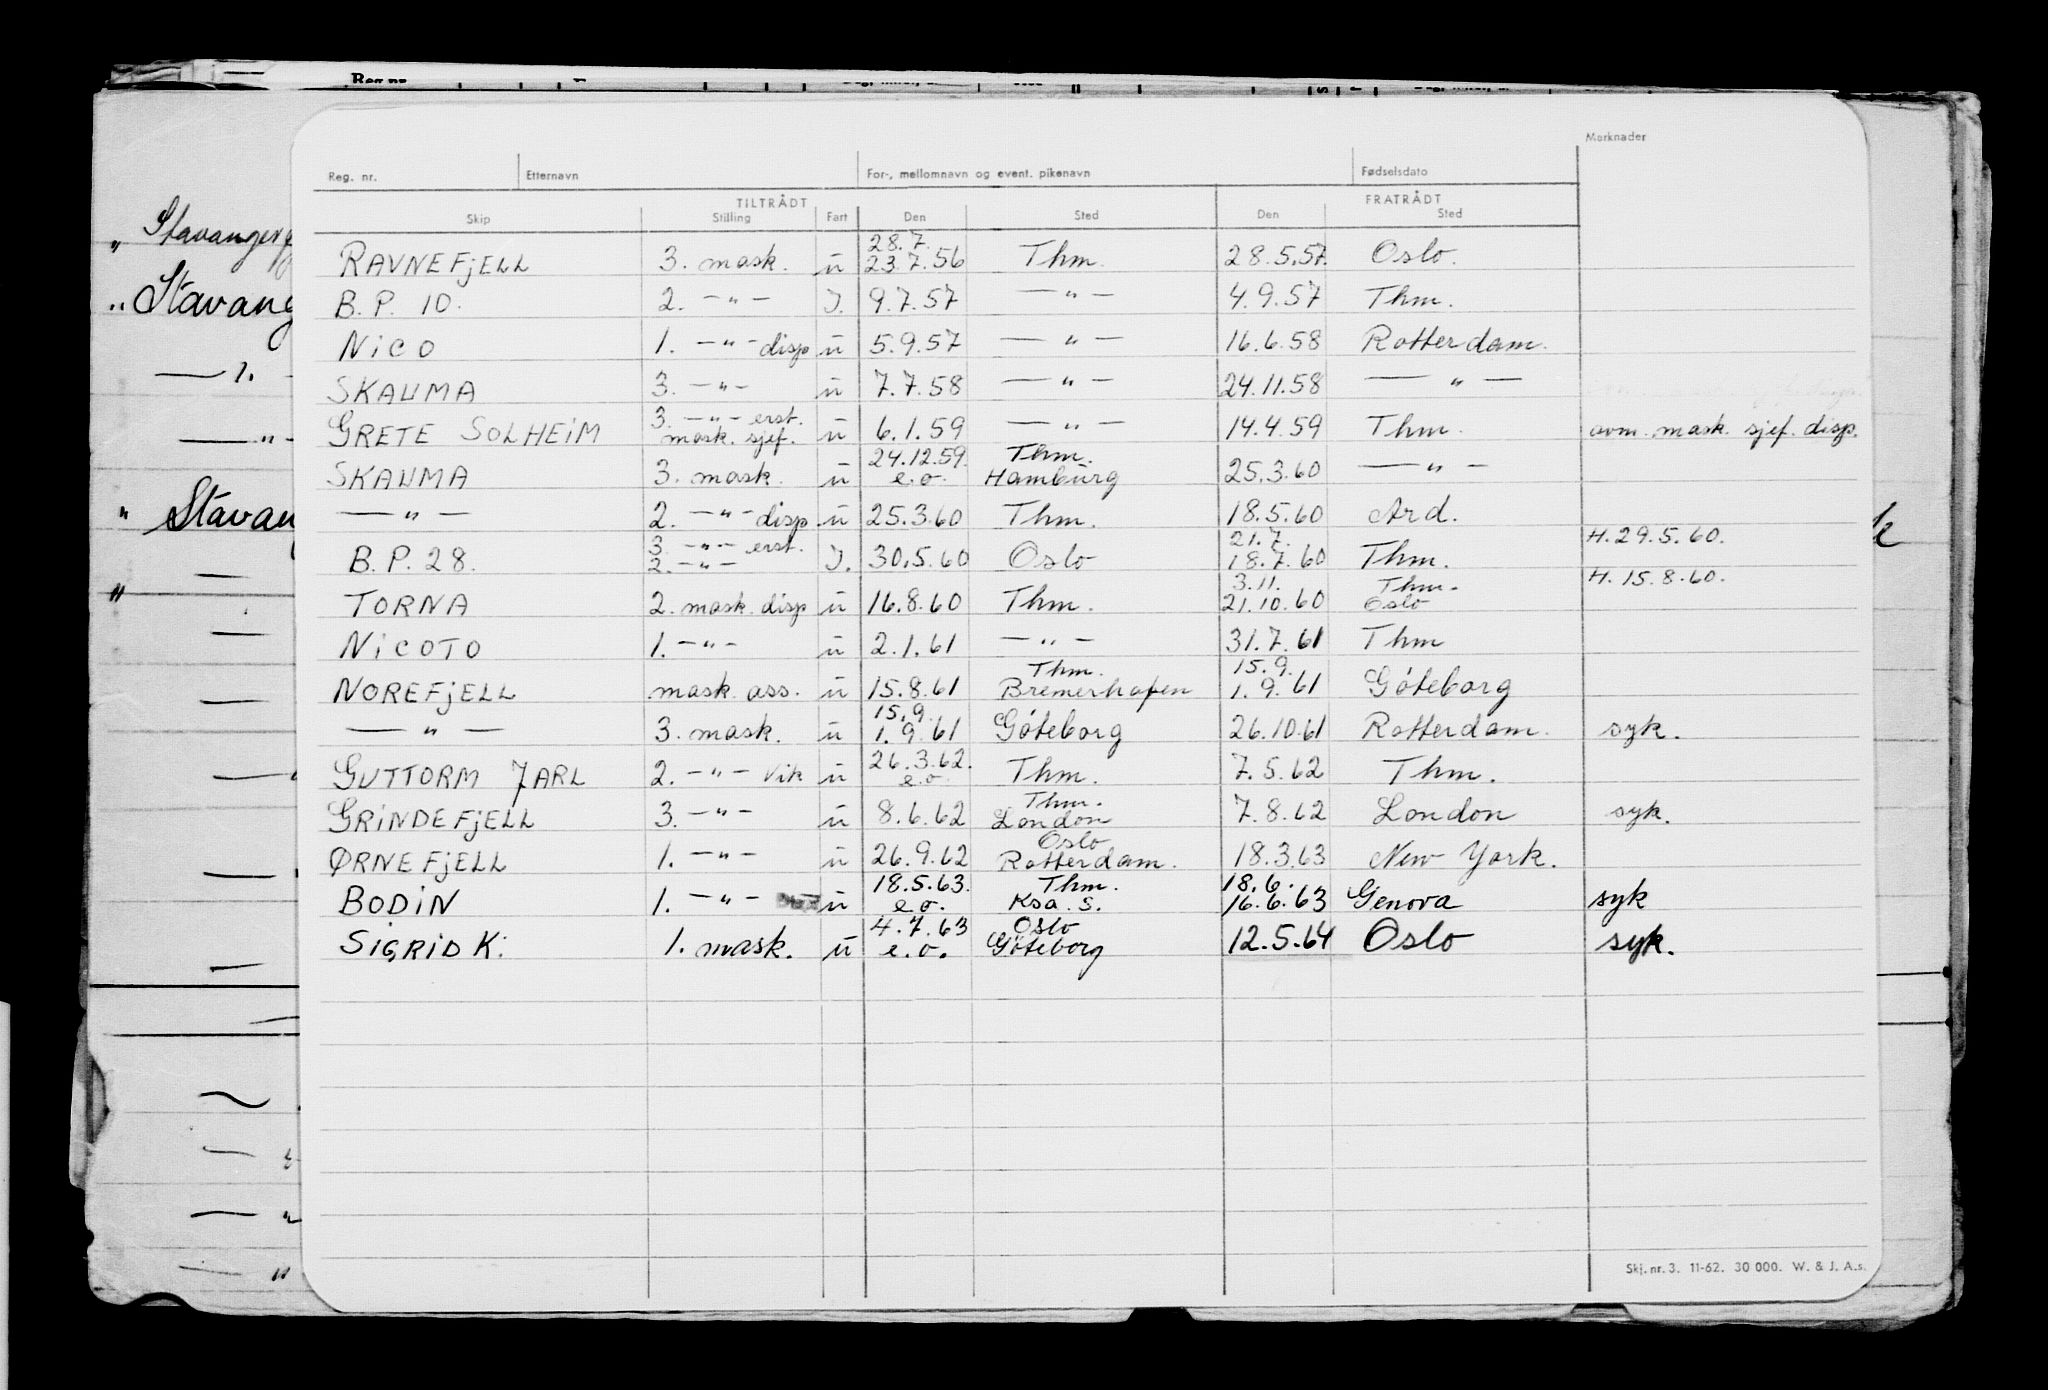 Merknader
Reg. nr. Etternavn For-, mellomnavn og event. pikenavn Fødselsdato
TILTRÅDT FRATRÅDT
Skip Stilling Fart Den Sted Den Sted
28.7.
RAVNEFJELL 3. mask. ü 23.7.56 Thm. 28.5.57. Oslo.
B.P. 10. 2. —"— J. 9.7.57 —"— 4.9.57 Thm.
NICO 1. —"— disp ü 5.9.57 —"— 16.6.58 Rotterdam.
SKAUMA 3. —"— ü 7.7.58 —"— 24.11.58 —"—
3. —"— erst.
GRETE SOLHEIM mask. sjef. ü 6.1.59 —"— 14.4.59 Thm. avm. mask. sjef. disp.
24.12.59. Thm.
SKAUMA 3. mask. ü e.o. Hamburg 25.3.60 —"—
—"— 2. —"— disp ü 25.3.60 Thm. 18.5.60 Ard.
3. —"— erst. 21.7. H. 29.5.60.
B.P. 28. 2. —"— J. 30.5.60 Oslo 18.7.60 Thm.
3.11. Thm. H. 15.8.60.
TORNA 2. mask. disp ü 16.8.60 Thm. 21.10.60 Oslo
NICOTO 1. —"— ü 2.1.61 —"— 31.7.61 Thm
Thm. 15.9.
NOREFJELL mask. ass. ü 15.8.61 Bremerhafen 1.9.61 Göteborg
15.9.
—"— 3. mask. ü 1.9.61 Göteborg 26.10.61 Rotterdam. syk.
26.3.62.
GUTTORM JARL 2. —"— Vik ü e.o. Thm. 7.5.62 Thm.
Thm.
GRINDEFJELL 3. —"— ü 8.6.62 London 7.8.62 London syk.
Oslo
ØRNEFJELL 1. —"— ü 26.9.62 Rotterdam. 18.3.63 New York.
18.5.63. Thm. 18.6.
BODIN 1. —"— ü e.o. Ksa. S. 16.6.63 Genova syk
4.7.63 Oslo
SIGRID K. 1. mask. ü e.o. Göteborg 12.5.64 Oslo syk.
Skj. nr. 3. 11-62. 30 000. W. & J. A.s.